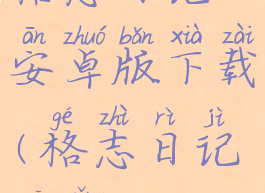 ān zhuó bǎn xià zài
安卓版下载
gé zhì rì jì
(格志日记